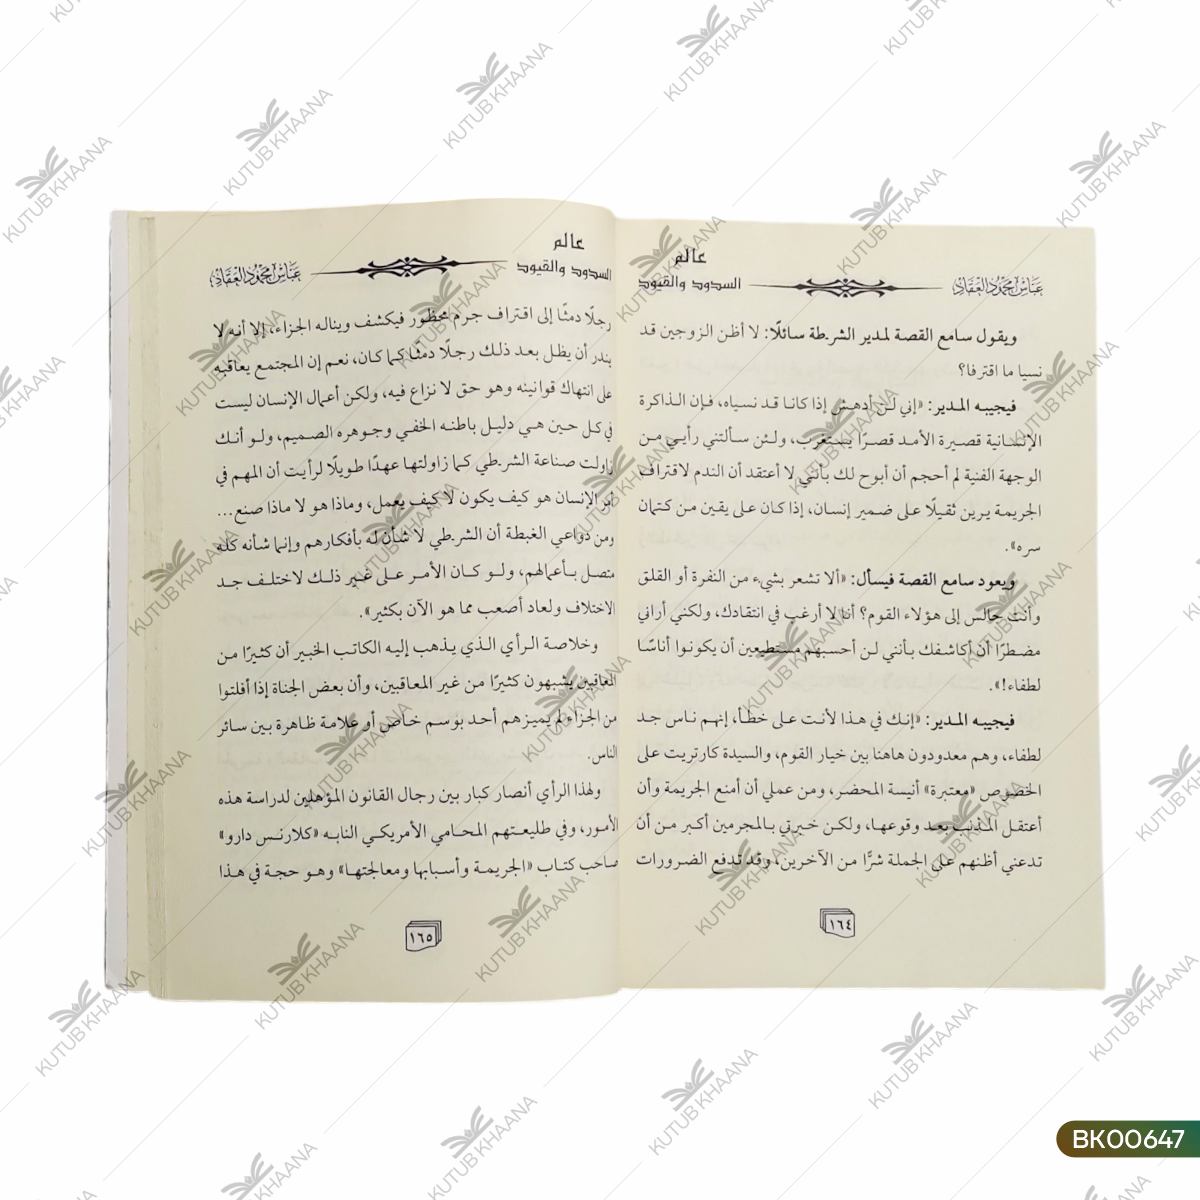 عالم
السدود والقيود
عباس محمود العقاد
ويقول سامع القصة لمدير الشرطة سائلًا: لا أظن الزوجين قد
نسيا ما اقترفا؟
فيجيبه المدير: «إني لن أدهش إذا كانا قد نسياه، فإن الذاكرة
الإنسانية قصيرة الأمد قصرًا يستغرب، ولئن سألتني رأيي من
الوجهة الفنية لم أحجم أن أبوح لك بأنني لا أعتقد أن الندم لاقتراف
الجريمة يرين ثقيلًا على ضمير إنسان، إذا كان على يقين من كتمان
سره».
ويعود سامع القصة فيسأل: «ألا تشعر بشيء من النفرة أو القلق
وأنت جالس إلى هؤلاء القوم؟ أنا لا أرغب في انتقادك، ولكني أراني
مضطرًا أن أكاشفك بأنني لن أحسبهم مستطيعين أن يكونوا أناسًا
لطفاء!».
فيجيبه المدير: «إنك في هذا لأنت على خطأ، إنهم ناس جد
لطفاء، وهم معدودون هاهنا بين خيار القوم، والسيدة كارتريت على
الخصوص «معتبرة» أنيسة المحضر، ومن عملي أن أمنع الجريمة وأن
أعتقل المذنب بعد وقوعها، ولكن خبرتي بالمجرمين أكبر من أن
تدعني أظنهم على الجملة شرًّا من الآخرين، وقد تدفع الضرورات
١٦٤
عالم
السدود والقيود
عباس محمود العقاد
رجلًا دمثًا إلى اقتراف جرم محظور فيكشف ويناله الجزاء، إلا أنه لا
يندر أن يظل بعد ذلك رجلًا دمثًا كما كان، نعم إن المجتمع يعاقبه
على انتهاك قوانينه وهو حق لا نزاع فيه، ولكن أعمال الإنسان ليست
في كل حين هي دليل باطنه الخفي وجوهره الصميم، ولو أنك
زاولت صناعة الشرطي كما زاولتها عهدًا طويلًا لرأيت أن المهم في
أمر الإنسان هو كيف يكون لا كيف يعمل، وماذا هو لا ماذا صنع...
ومن دواعي الغبطة أن الشرطي لا شأن له بأفكارهم وإنما شأنه كله
متصل بأعمالهم، ولو كان الأمر على غير ذلك لاختلف جد
الاختلاف ولعاد أصعب مما هو الآن بكثير».
وخلاصة الرأي الذي يذهب إليه الكاتب الخبير أن كثيرًا من
المعاقبين يشبهون كثيرًا من غير المعاقبين، وأن بعض الجناة إذا أفلتوا
من الجزاء لم يميزهم أحد بوسم خاص أو علامة ظاهرة بين سائر
الناس.
ولهذا الرأي أنصار كبار بين رجال القانون المؤهلين لدراسة هذه
الأمور، وفي طليعتهم المحامي الأمريكي النابه «كلارنس دارو»
صاحب كتاب «الجريمة وأسبابها ومعالجتها» وهو حجة في هذا
١٦٥
KUTUB KHAANA
BK00647